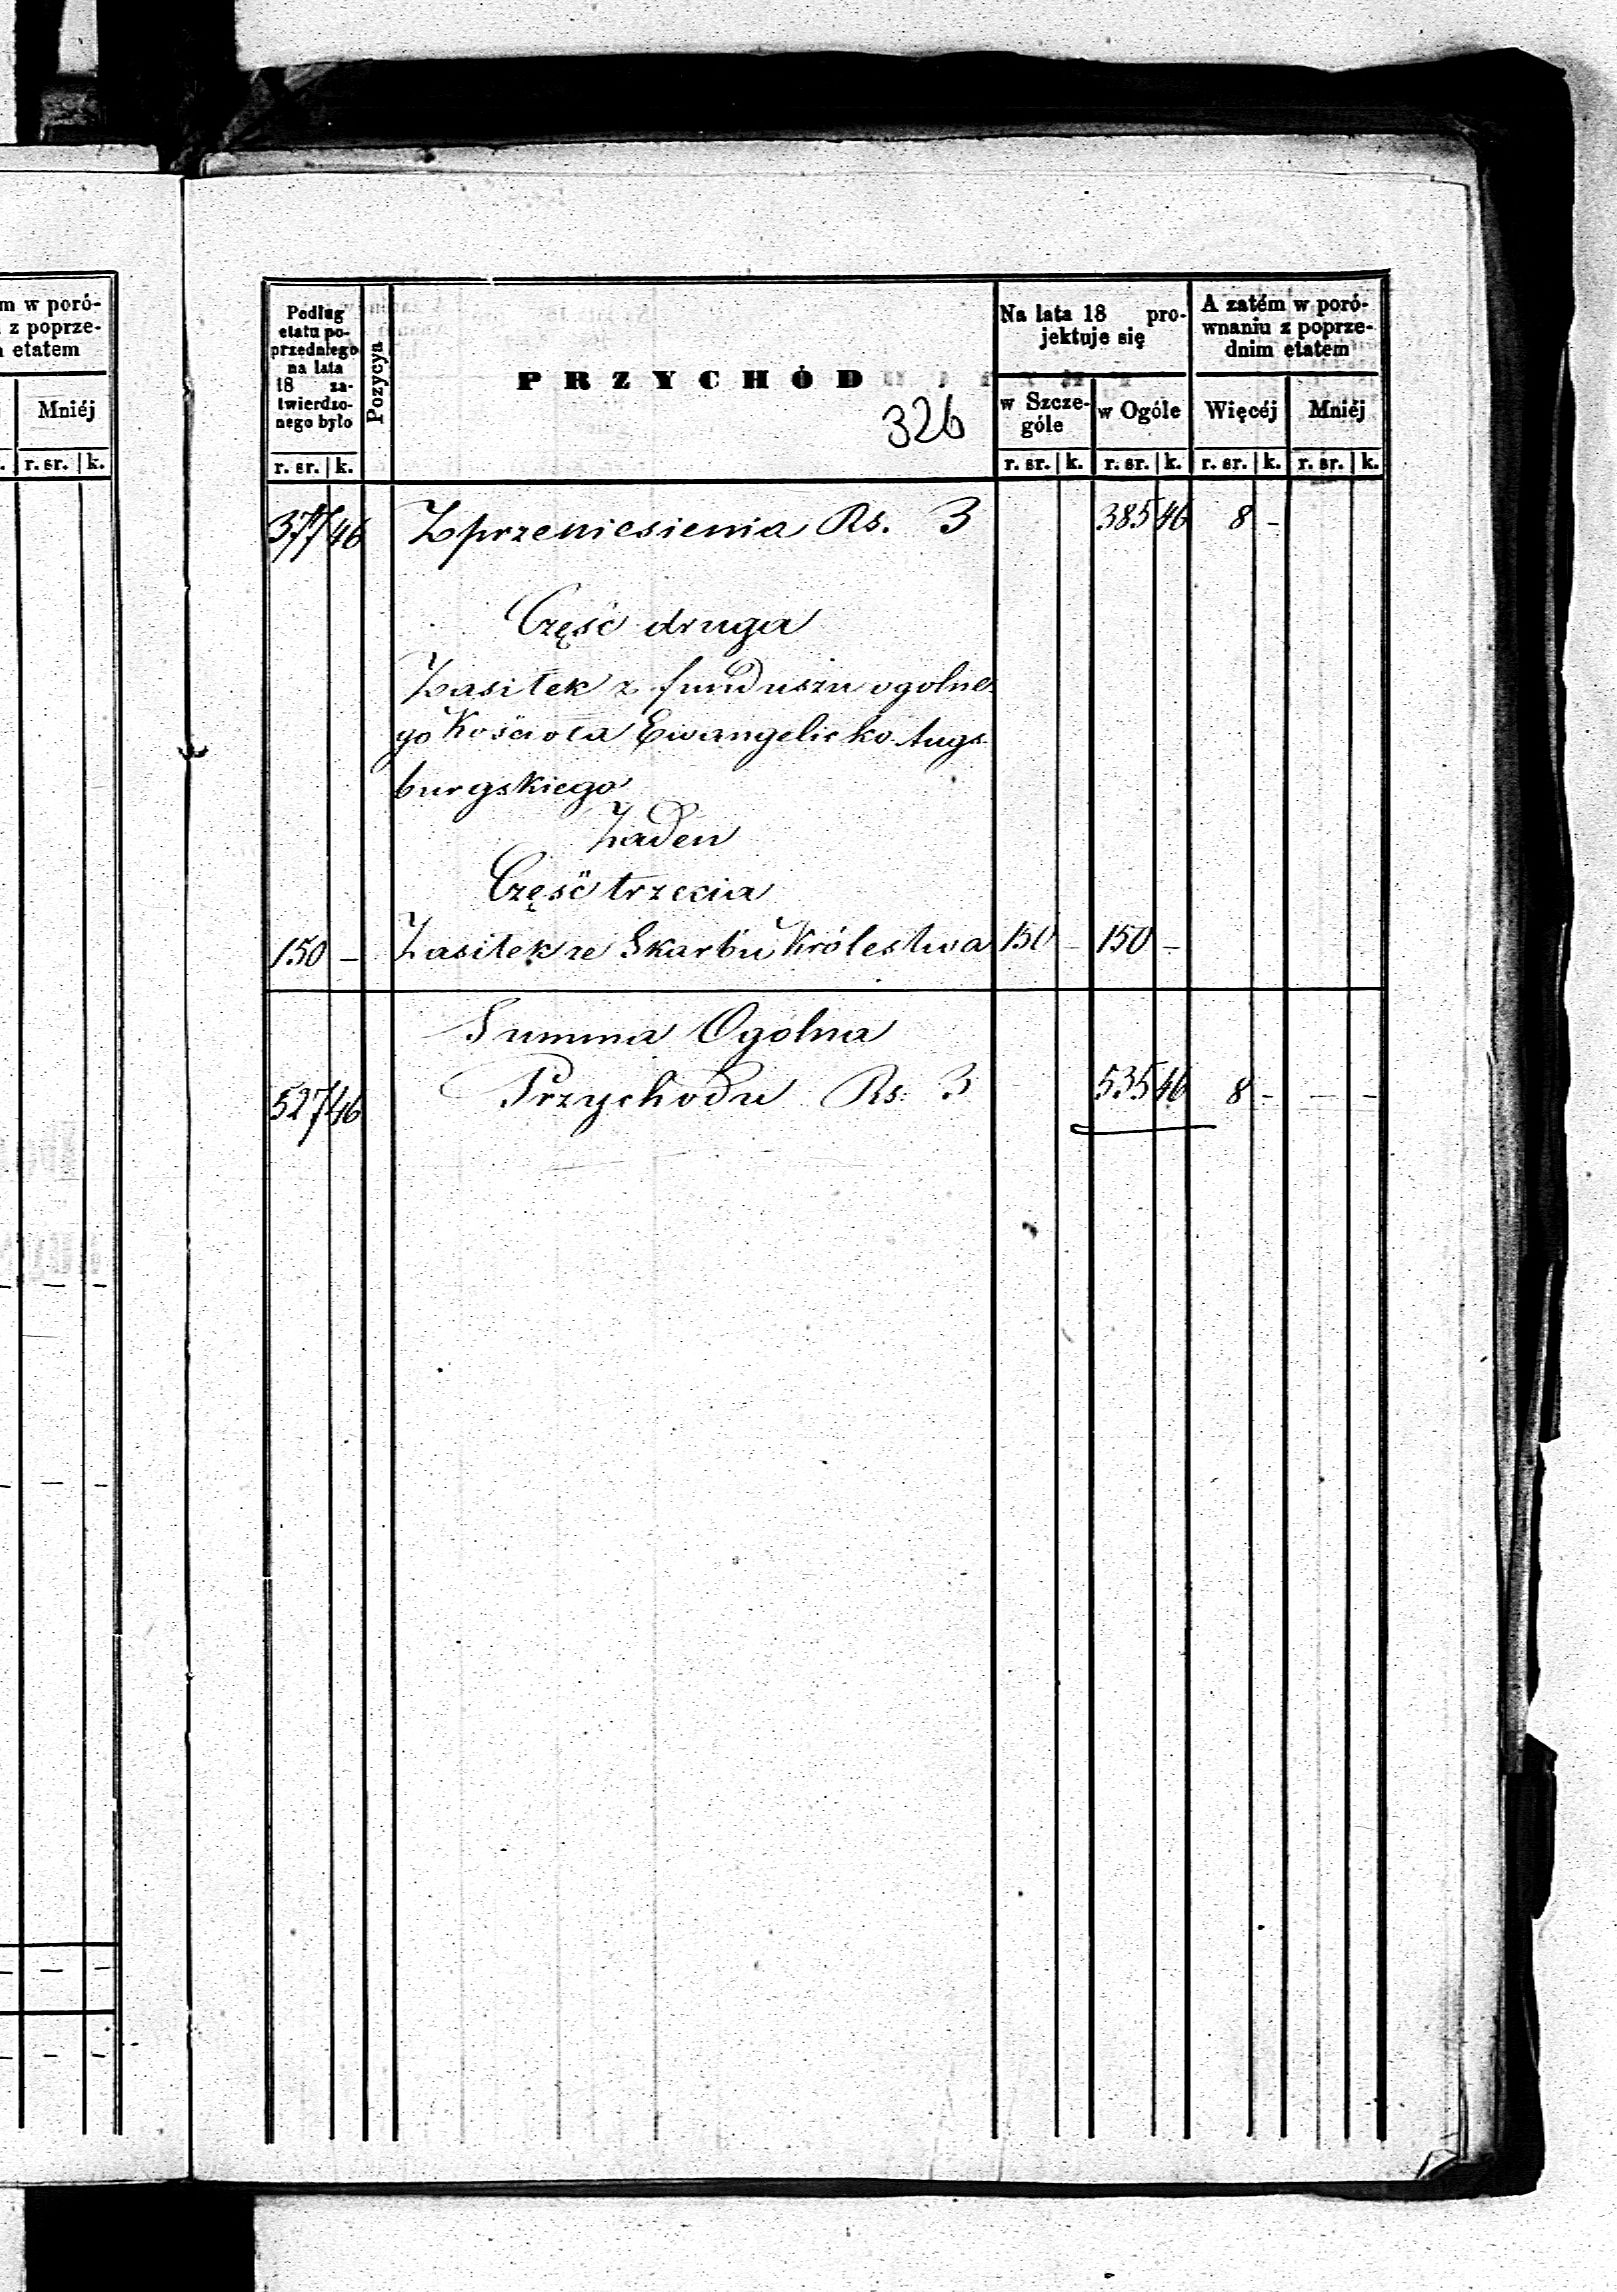 m w poró-
z poprze-
etatem
Mniéj
r. sr. k.
Podług
etatu po-
przedniego
na lata
18 za-
twierdzo-
nego było
Pozycya
PRZYCHÓD
326
Na lata 18 pro-
jektuje się
A zatém w poró-
wnaniu z poprze-
dnim etatem
w Szcze-
góle
w Ogóle
Więcéj
Mniéj
r. sr. k. r. sr. k. r. sr. k. r. sr. k. r. sr. k.
377 46 Z przeniesienia Rs. 3 385 46 8 -
Część druga
Zasiłek z funduszu ogolne
go Kościoła Ewangelicko Augs
burgskiego
Żaden
Część trzecia
150 - Zasiłek ze Skarbu Królestwa 150 - 150 -
Summa Ogolna
527 46 Przychodu Rs: 3 535 46 8 - - -